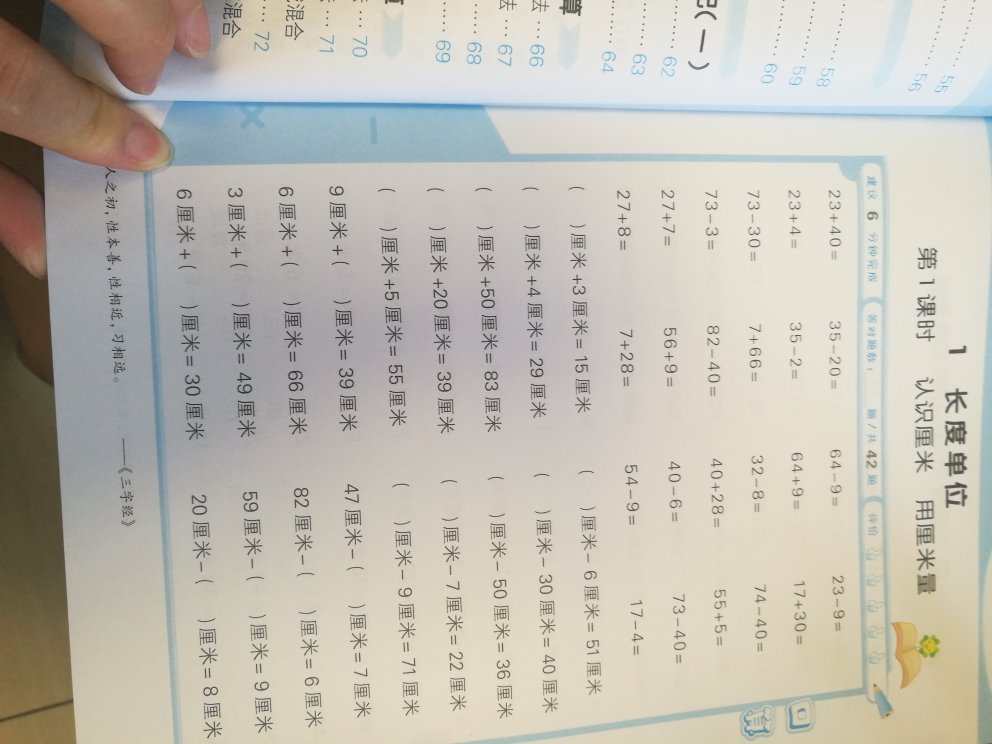 1 长度单位
第1课时 认识厘米 用厘米量
建议 6 分钟完成 答对题数: 题/共 42 题 评价
口算
23+40= 35-20= 64-9= 23-9=
23+4= 35-2= 64+9= 17+30=
73-30= 7+66= 32-8= 74-40=
73-3= 82-40= 40+28= 55+5=
27+7= 56+9= 40-6= 73-40=
27+8= 7+28= 54-9= 17-4=
( )厘米+3厘米=15厘米 ( )厘米-6厘米=51厘米
( )厘米+4厘米=29厘米 ( )厘米-30厘米=40厘米
( )厘米+50厘米=83厘米 ( )厘米-50厘米=36厘米
( )厘米+20厘米=39厘米 ( )厘米-7厘米=22厘米
( )厘米+5厘米=55厘米 ( )厘米-9厘米=71厘米
9厘米+( )厘米=39厘米 47厘米-( )厘米=7厘米
6厘米+( )厘米=66厘米 82厘米-( )厘米=6厘米
3厘米+( )厘米=49厘米 59厘米-( )厘米=9厘米
6厘米+( )厘米=30厘米 20厘米-( )厘米=8厘米
人之初,性本善,性相近,习相远。 ——《三字经》
55
56
58
59
60
(一)
62
63
64
算
去 66
去 67
68
69
70
71
混合 72
混合